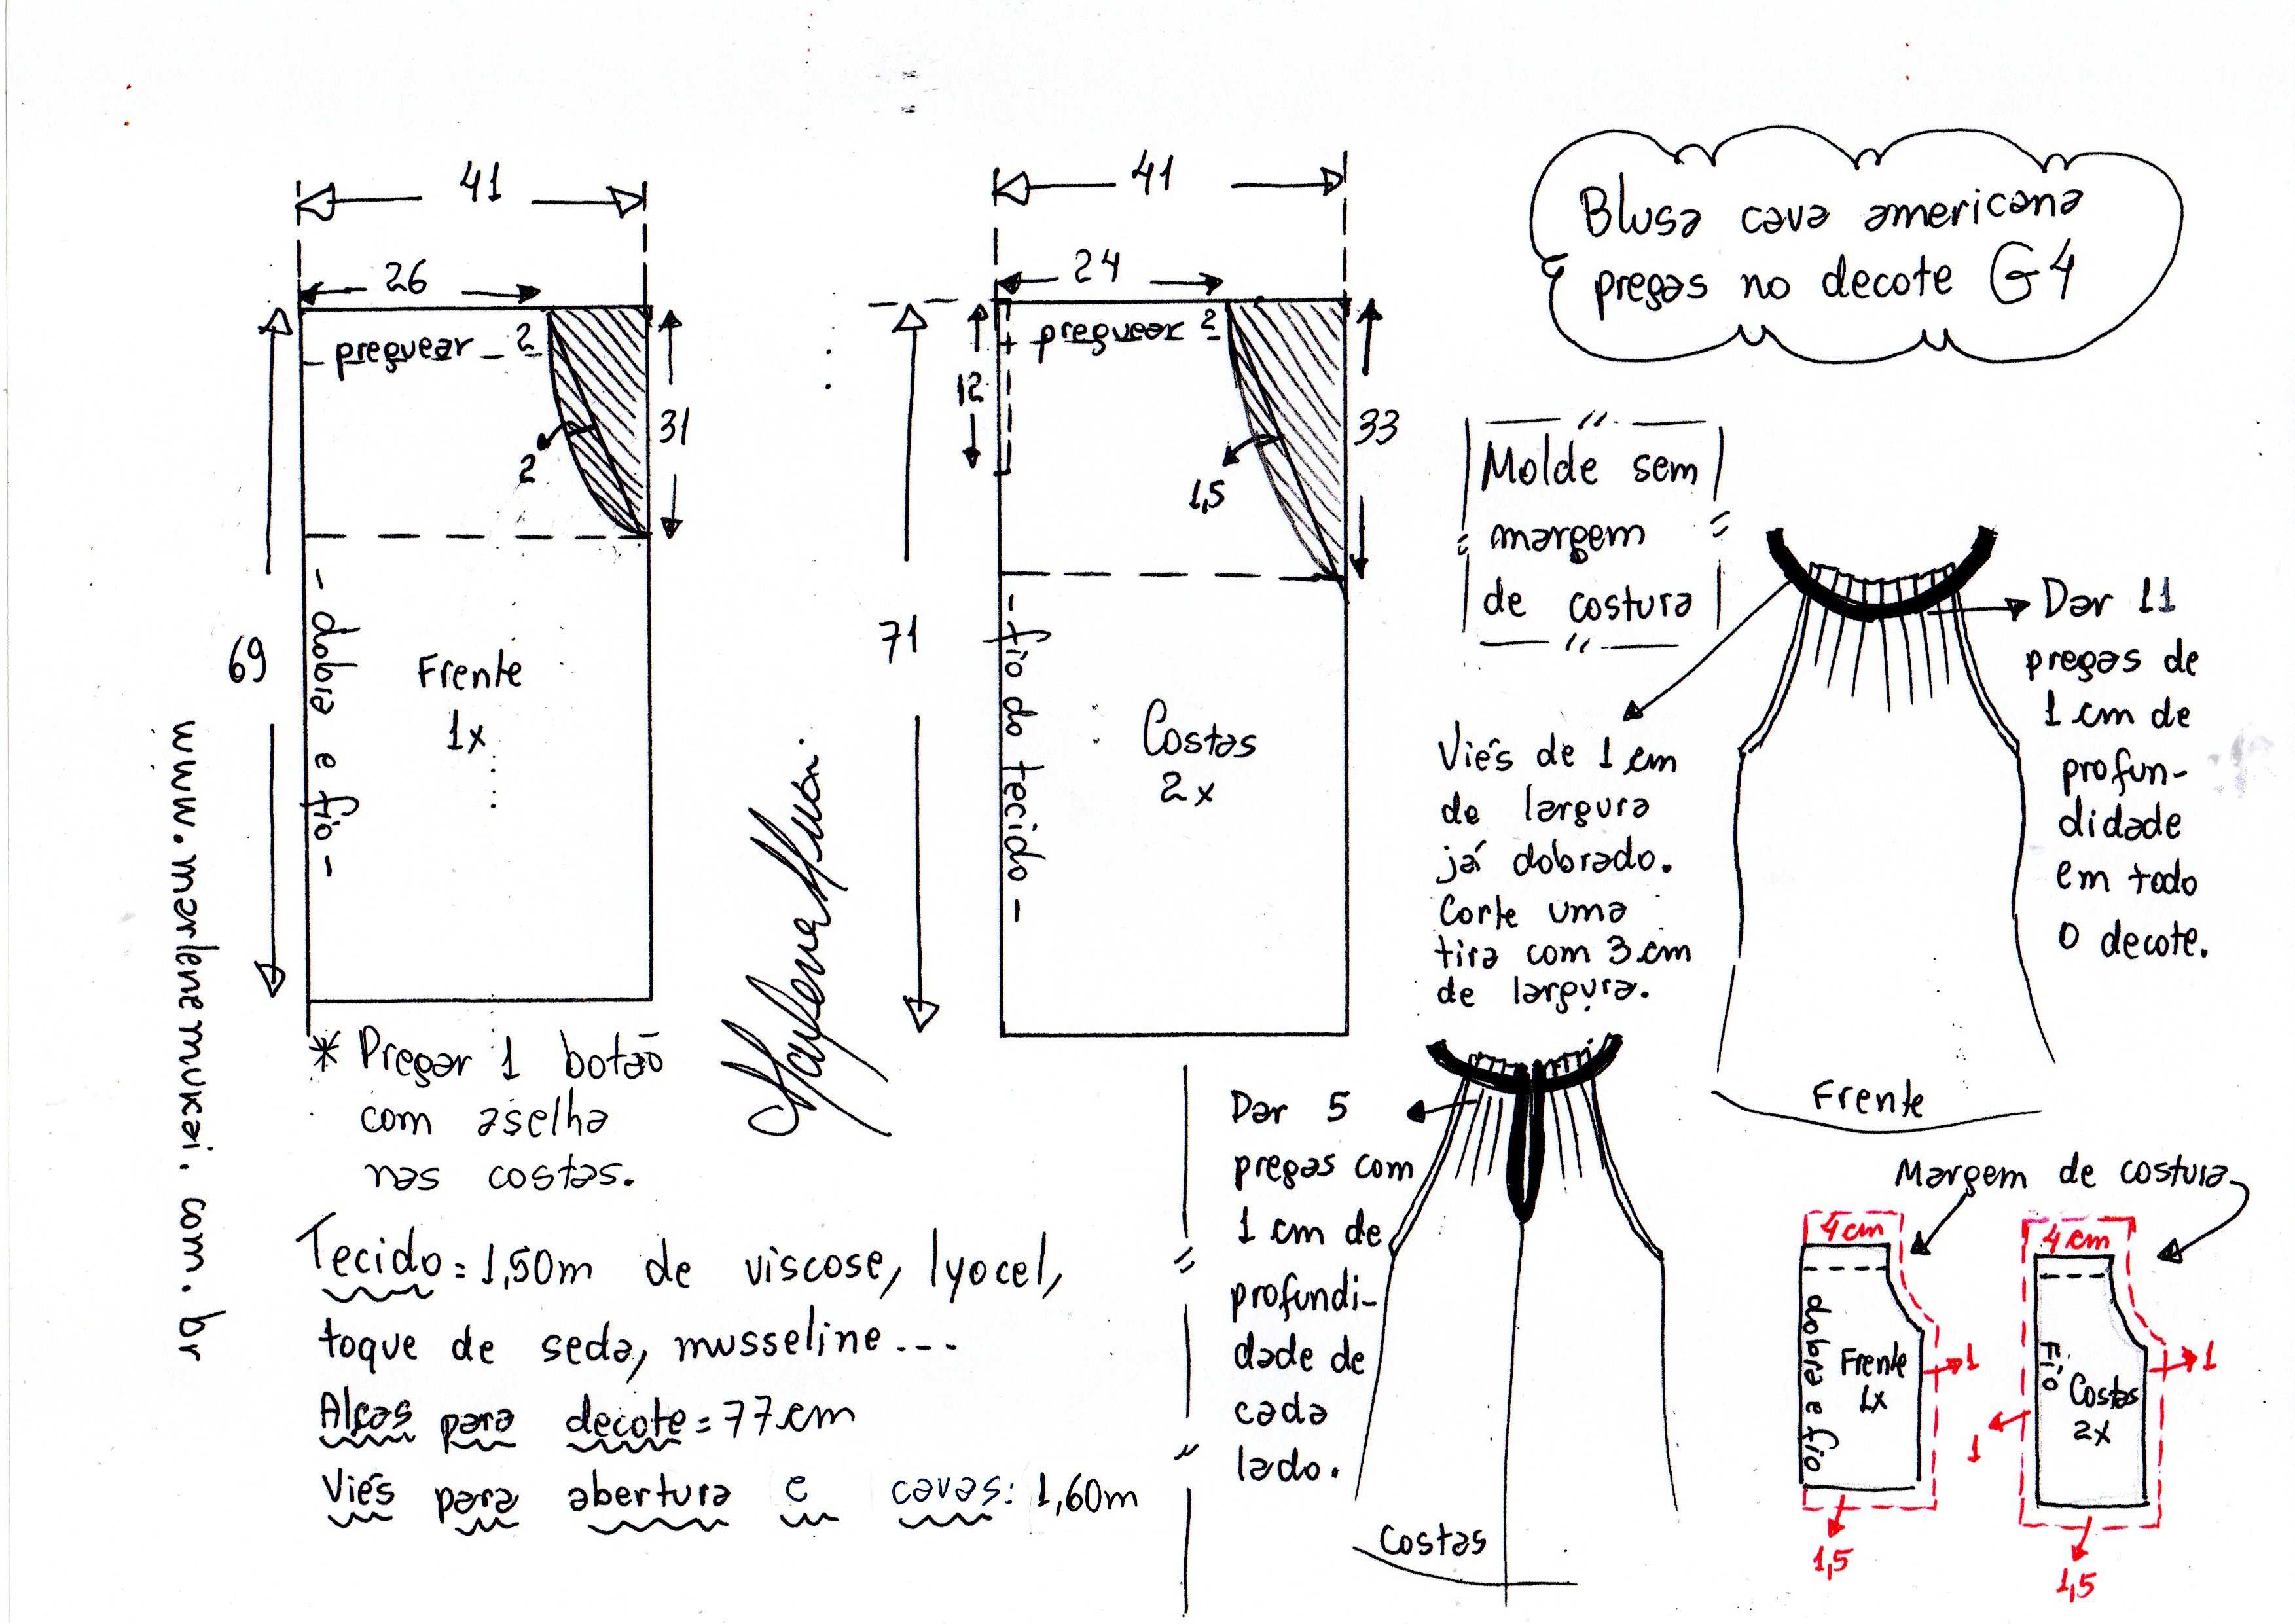 Blusa cava americana
pregas no decote G4
41
26
preguear 2
2
31
69
- dobra e fio -
Frente
1x
41
24
preguear 2
12
1,5
33
71
- fio do tecido -
Costas
2x
Molde sem
margem
de costura
Dar 11
pregas de
1 cm de
profun-
didade
em todo
o decote.
Viés de 1 cm
de largura
já dobrado.
Corte uma
tira com 3 cm
de largura.
Frente
www.marlenemukai.com.br
* Pregar 1 botão
com aselha
nas costas.
Marlene Mukai
Tecido = 1,50m de viscose, lyocel,
toque de seda, musseline...
Alças para decote = 77cm
Viés para abertura e cavas: 1,60m
Dar 5
pregas com
1 cm de
profundi-
dade de
cada
lado.
Costas
Margem de costura
4cm
dobra e fio
Frente
1x
1
1,5
4cm
Fio
Costas
2x
1
1
1,5